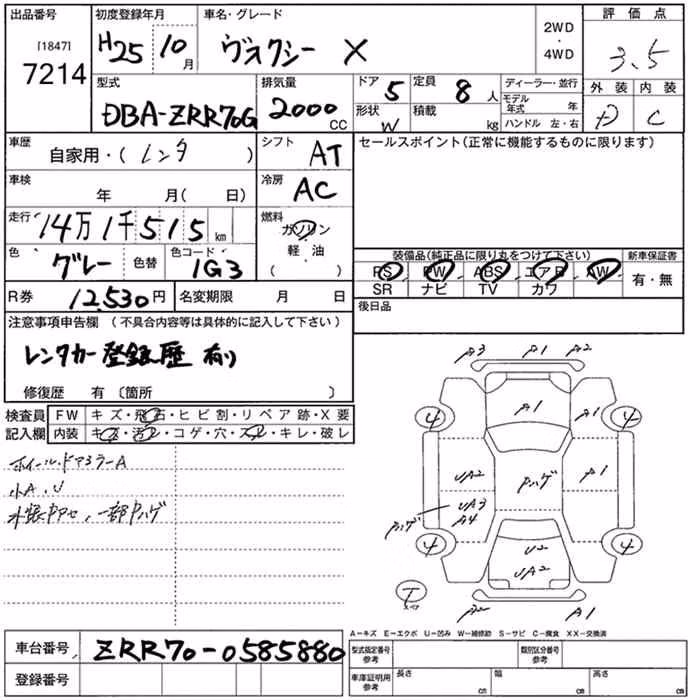 出品番号
[1847]
7214
初度登録年月
H25 10月
車名・グレード
ヴォクシー X
2WD
・
4WD
評価点
3.5
型式
DBA-ZRR70G
排気量
2000 CC
ドア 5
定員 8 人
形状 W
積載 kg
ディーラー・並行
モデル年式 年
ハンドル 左・右
外装 内装
D C
車歴
自家用・( レンタ )
シフト
AT
セールスポイント(正常に機能するものに限ります)
車検
年 月( 日)
冷房
AC
走行
14万1千515km
燃料
ガソリン
軽・油
( )
色
グレー
色替
色コード
1G3
装備品(純正品に限り丸をつけて下さい)
PS PW ABS エアB AW
SR ナビ TV カワ
新車保証書
有・無
R券 12,530円
名変期限 月 日
後日品
注意事項申告欄 (不具合内容等は具体的に記入して下さい)
レンタカー登録歴 有り
修復歴 有 〔箇所 〕
検査員記入欄
FW キズ・飛石・ヒビ割・リペア跡・X要
内装 キズ・汚レ・コゲ・穴・スレ・キレ・破レ
ホイール、ドアミラーA
小A、U
外装、一部ハゲ
A3 A1 A2
A1
4 4
UA2 ハゲ A1
UA3
A4
ハゲ
4 4
U2
UA2
T
スペア
A2 A1
A−キズ E−エクボ U−凹み W−補修跡 S−サビ C−腐食 XX−交換済
車台番号 ZRR70-0585880
登録番号
型式指定番号
参考
類別区分番号
参考
車庫証明用
参考
長さ cm
幅 cm
高さ cm